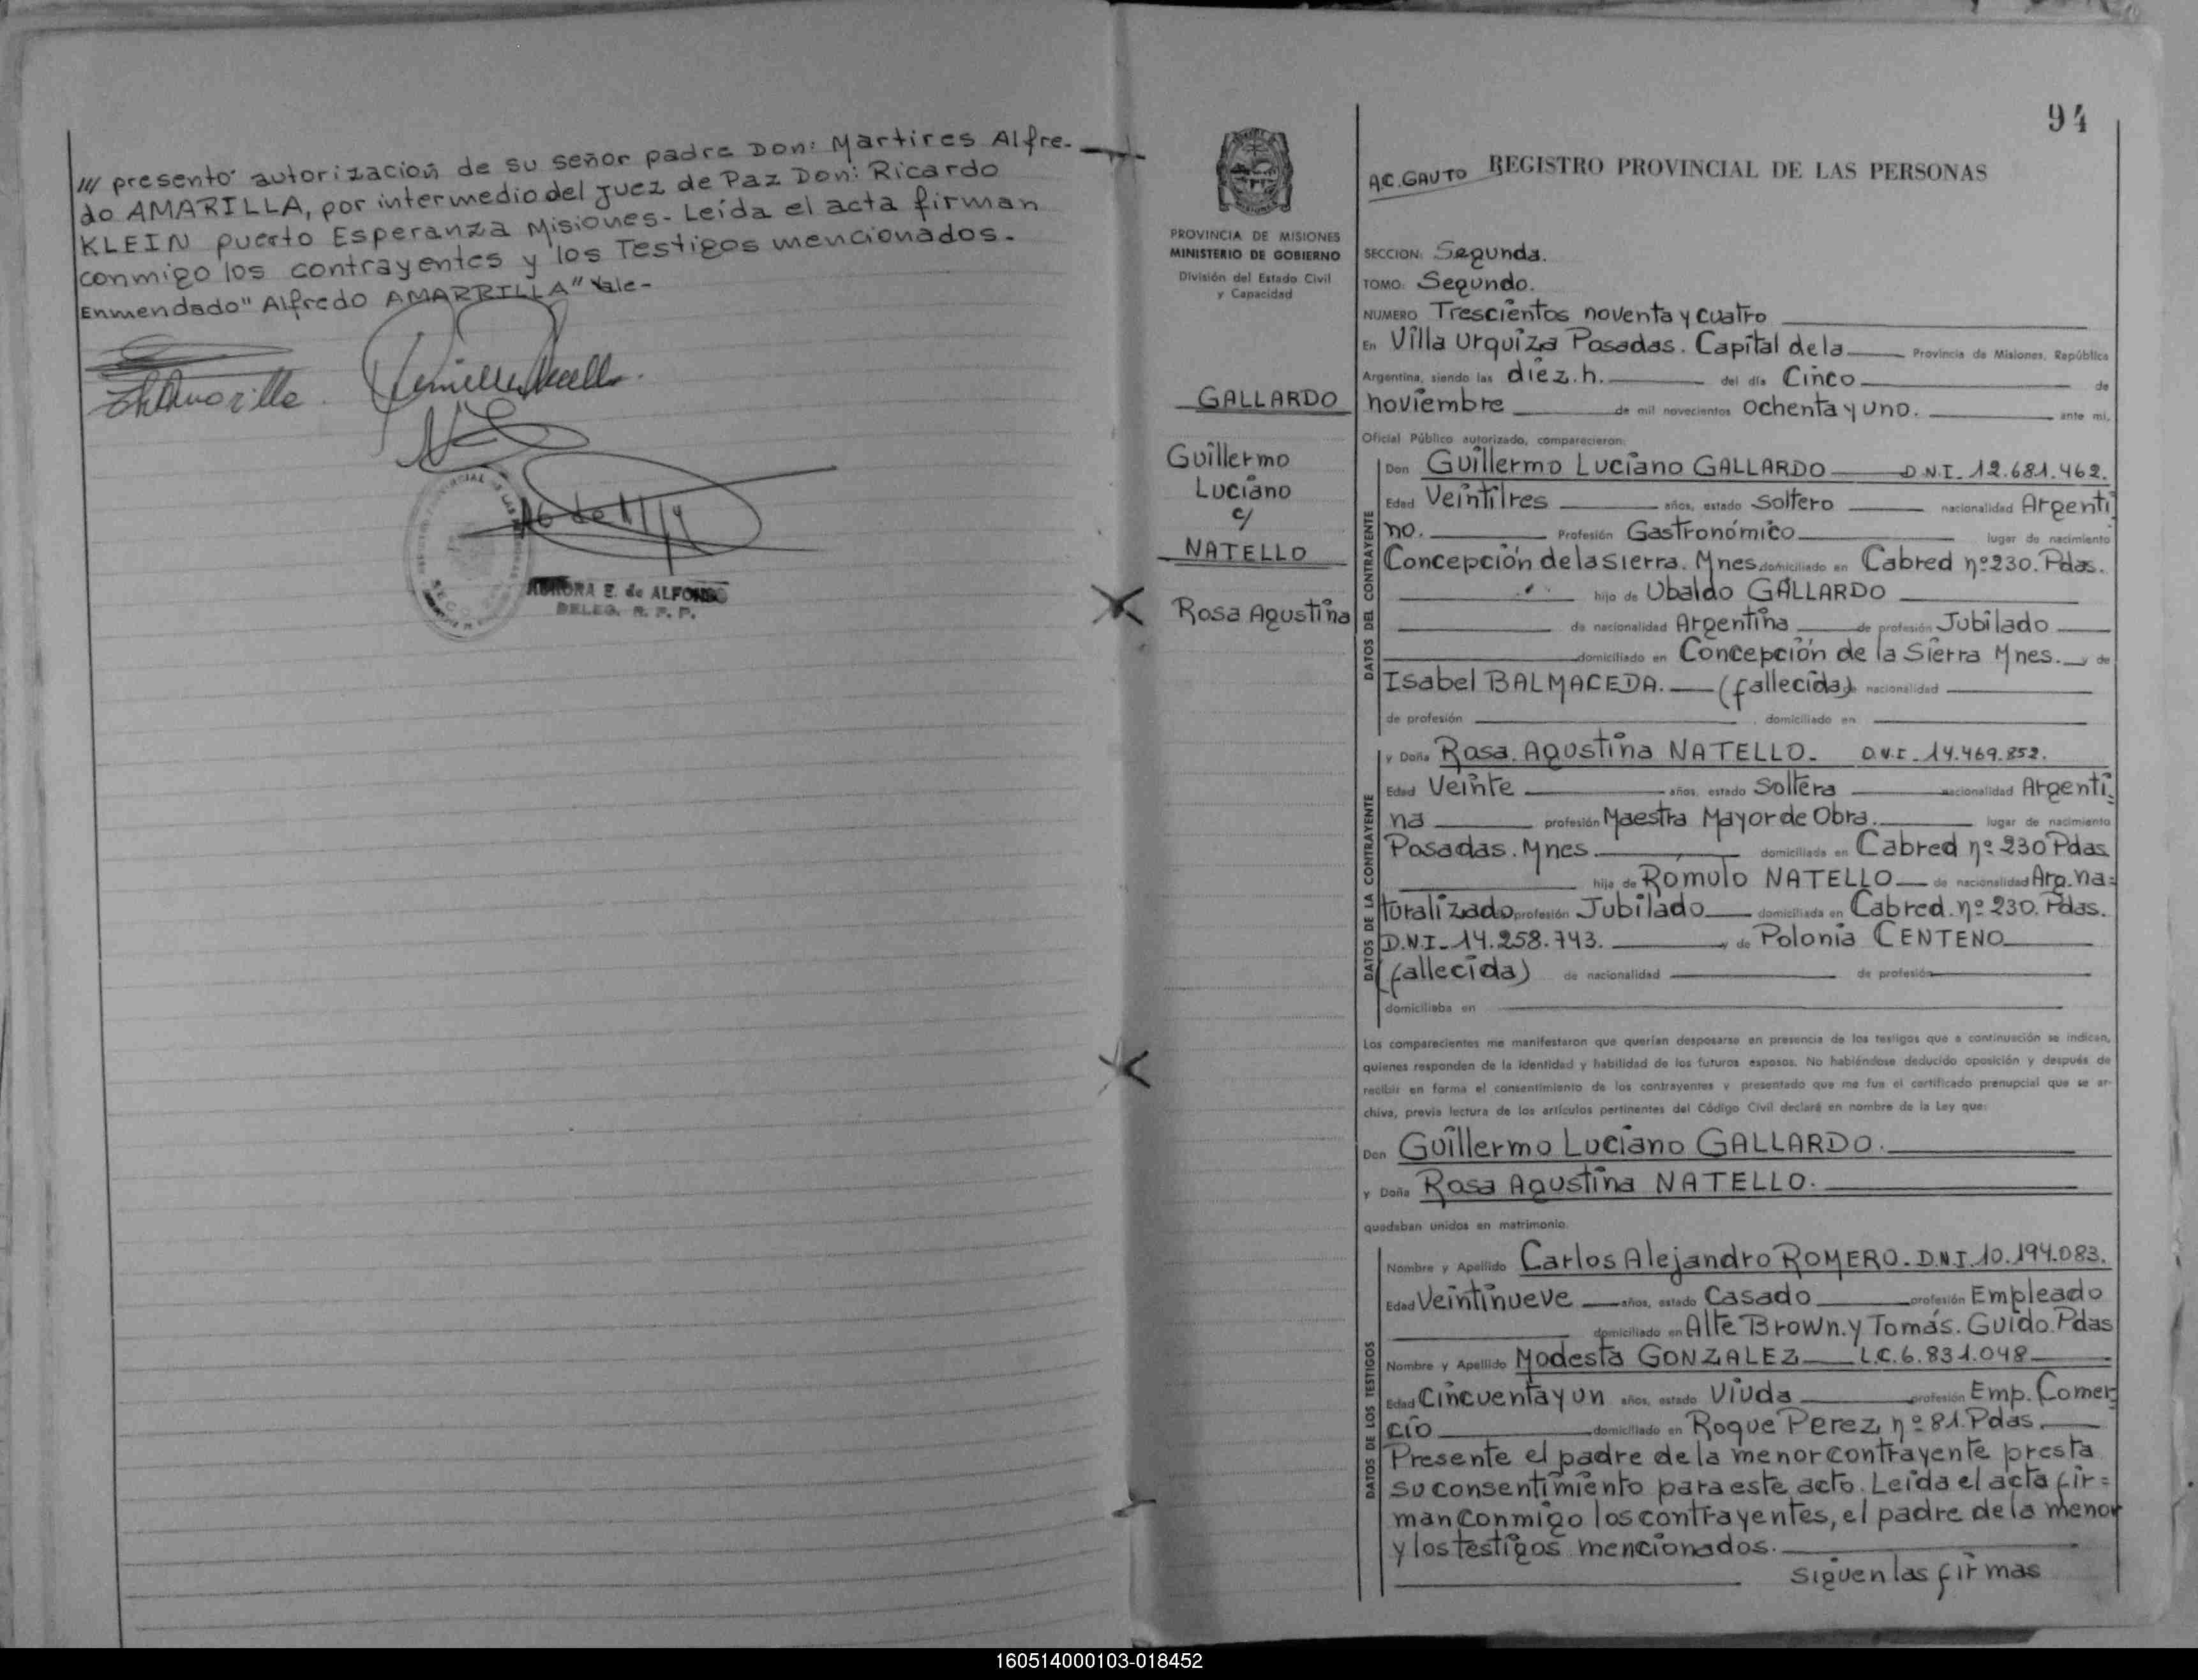 /// presentó autorización de su señor padre Don: Martires Alfre-
do AMARILLA, por intermedio del Juez de Paz Don: Ricardo
KLEIN puerto Esperanza Misiones - Leída el acta firman
conmigo los contrayentes y los Testigos mencionados.
Enmendado "Alfredo AMARRILLA" Vale-
AURORA E. de ALFONSO
DELEG. R. P. P.
94
A.C. GAUTO REGISTRO PROVINCIAL DE LAS PERSONAS
PROVINCIA DE MISIONES
MINISTERIO DE GOBIERNO
División del Estado Civil
y Capacidad
GALLARDO
Guillermo
Luciano
c/
NATELLO
Rosa Agustina
SECCION: Segunda.
TOMO: Segundo.
NUMERO Trescientos noventa y cuatro
En Villa Urquiza Posadas. Capital de la Provincia de Misiones, República
Argentina, siendo las diez. h. del día Cinco de
noviembre de mil novecientos ochenta y uno. ante mí,
Oficial Público autorizado, comparecieron:
DATOS DEL CONTRAYENTE
Don Guillermo Luciano GALLARDO D.N.I. 12.681.462.
Edad Veintitres años, estado Soltero nacionalidad Argenti
no. Profesión Gastronómico lugar de nacimiento
Concepción de la Sierra. Mnes. domiciliado en Cabred nº 230. Pdas.
hijo de Ubaldo GALLARDO
de nacionalidad Argentina de profesión Jubilado
domiciliado en Concepción de la Sierra Mnes. y de
Isabel BALMACEDA. (fallecida) de nacionalidad
de profesión domiciliado en
DATOS DE LA CONTRAYENTE
y Doña Rosa. Agustina NATELLO. D.N.I. 14.469.852.
Edad Veinte años, estado Soltera nacionalidad Argenti
na profesión Maestra Mayor de Obra. lugar de nacimiento
Posadas. Mnes. domiciliada en Cabred nº 230 Pdas
hija de Romulo NATELLO de nacionalidad Arg. na=
turalizado profesión Jubilado domiciliado en Cabred. nº 230. Pdas.
D.N.I. 14.258.743. y de Polonia CENTENO
(fallecida) de nacionalidad de profesión
domiciliaba en
Los comparecientes me manifestaron que querían desposarse en presencia de los testigos que a continuación se indican,
quienes responden de la identidad y habilidad de los futuros esposos. No habiéndose deducido oposición y después de
recibir en forma el consentimiento de los contrayentes y presentado que me fue el certificado prenupcial que se ar-
chiva, previa lectura de los artículos pertinentes del Código Civil declaré en nombre de la Ley que:
Don Guillermo Luciano GALLARDO.
y Doña Rosa Agustina NATELLO.
quedaban unidos en matrimonio.
DATOS DE LOS TESTIGOS
Nombre y Apellido Carlos Alejandro ROMERO. D.N.I. 10.194.083.
Edad Veintinueve años, estado Casado profesión Empleado
domiciliado en Alte Brown. y Tomás. Guido. Pdas
Nombre y Apellido Modesta GONZALEZ L.C. 6.831.048
Edad Cincuenta y un años, estado Viuda profesión Emp. Comer
cio domiciliado en Roque Perez nº 81. Pdas.
Presente el padre de la menor contrayente presta
su consentimiento para este acto. Leída el acta fir=
man conmigo los contrayentes, el padre de la menor
y los testigos mencionados.
siguen las firmas
160514000103-018452